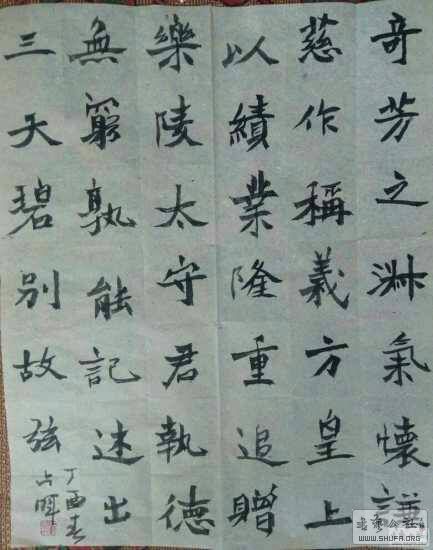 奇芳之淋氣懷
慈作稱義方皇上
以績業隆重追贈
樂陵太守君執德
無窮孰能記述出
三天碧別故弦
丁酉春
占暉
书艺公社
WWW.SHUFA.ORG